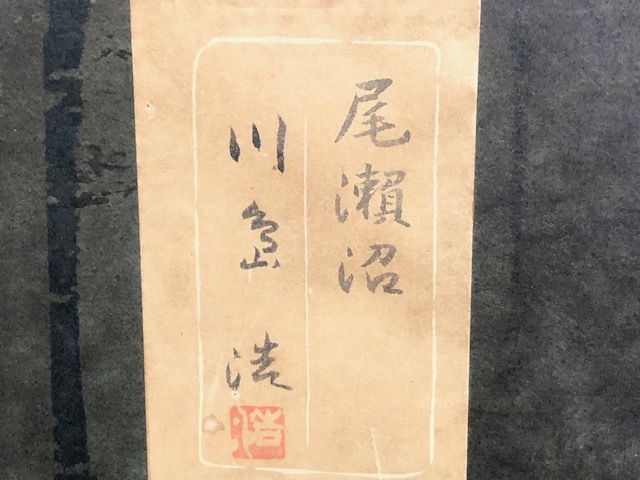 尾瀬沼
川島浩
浩